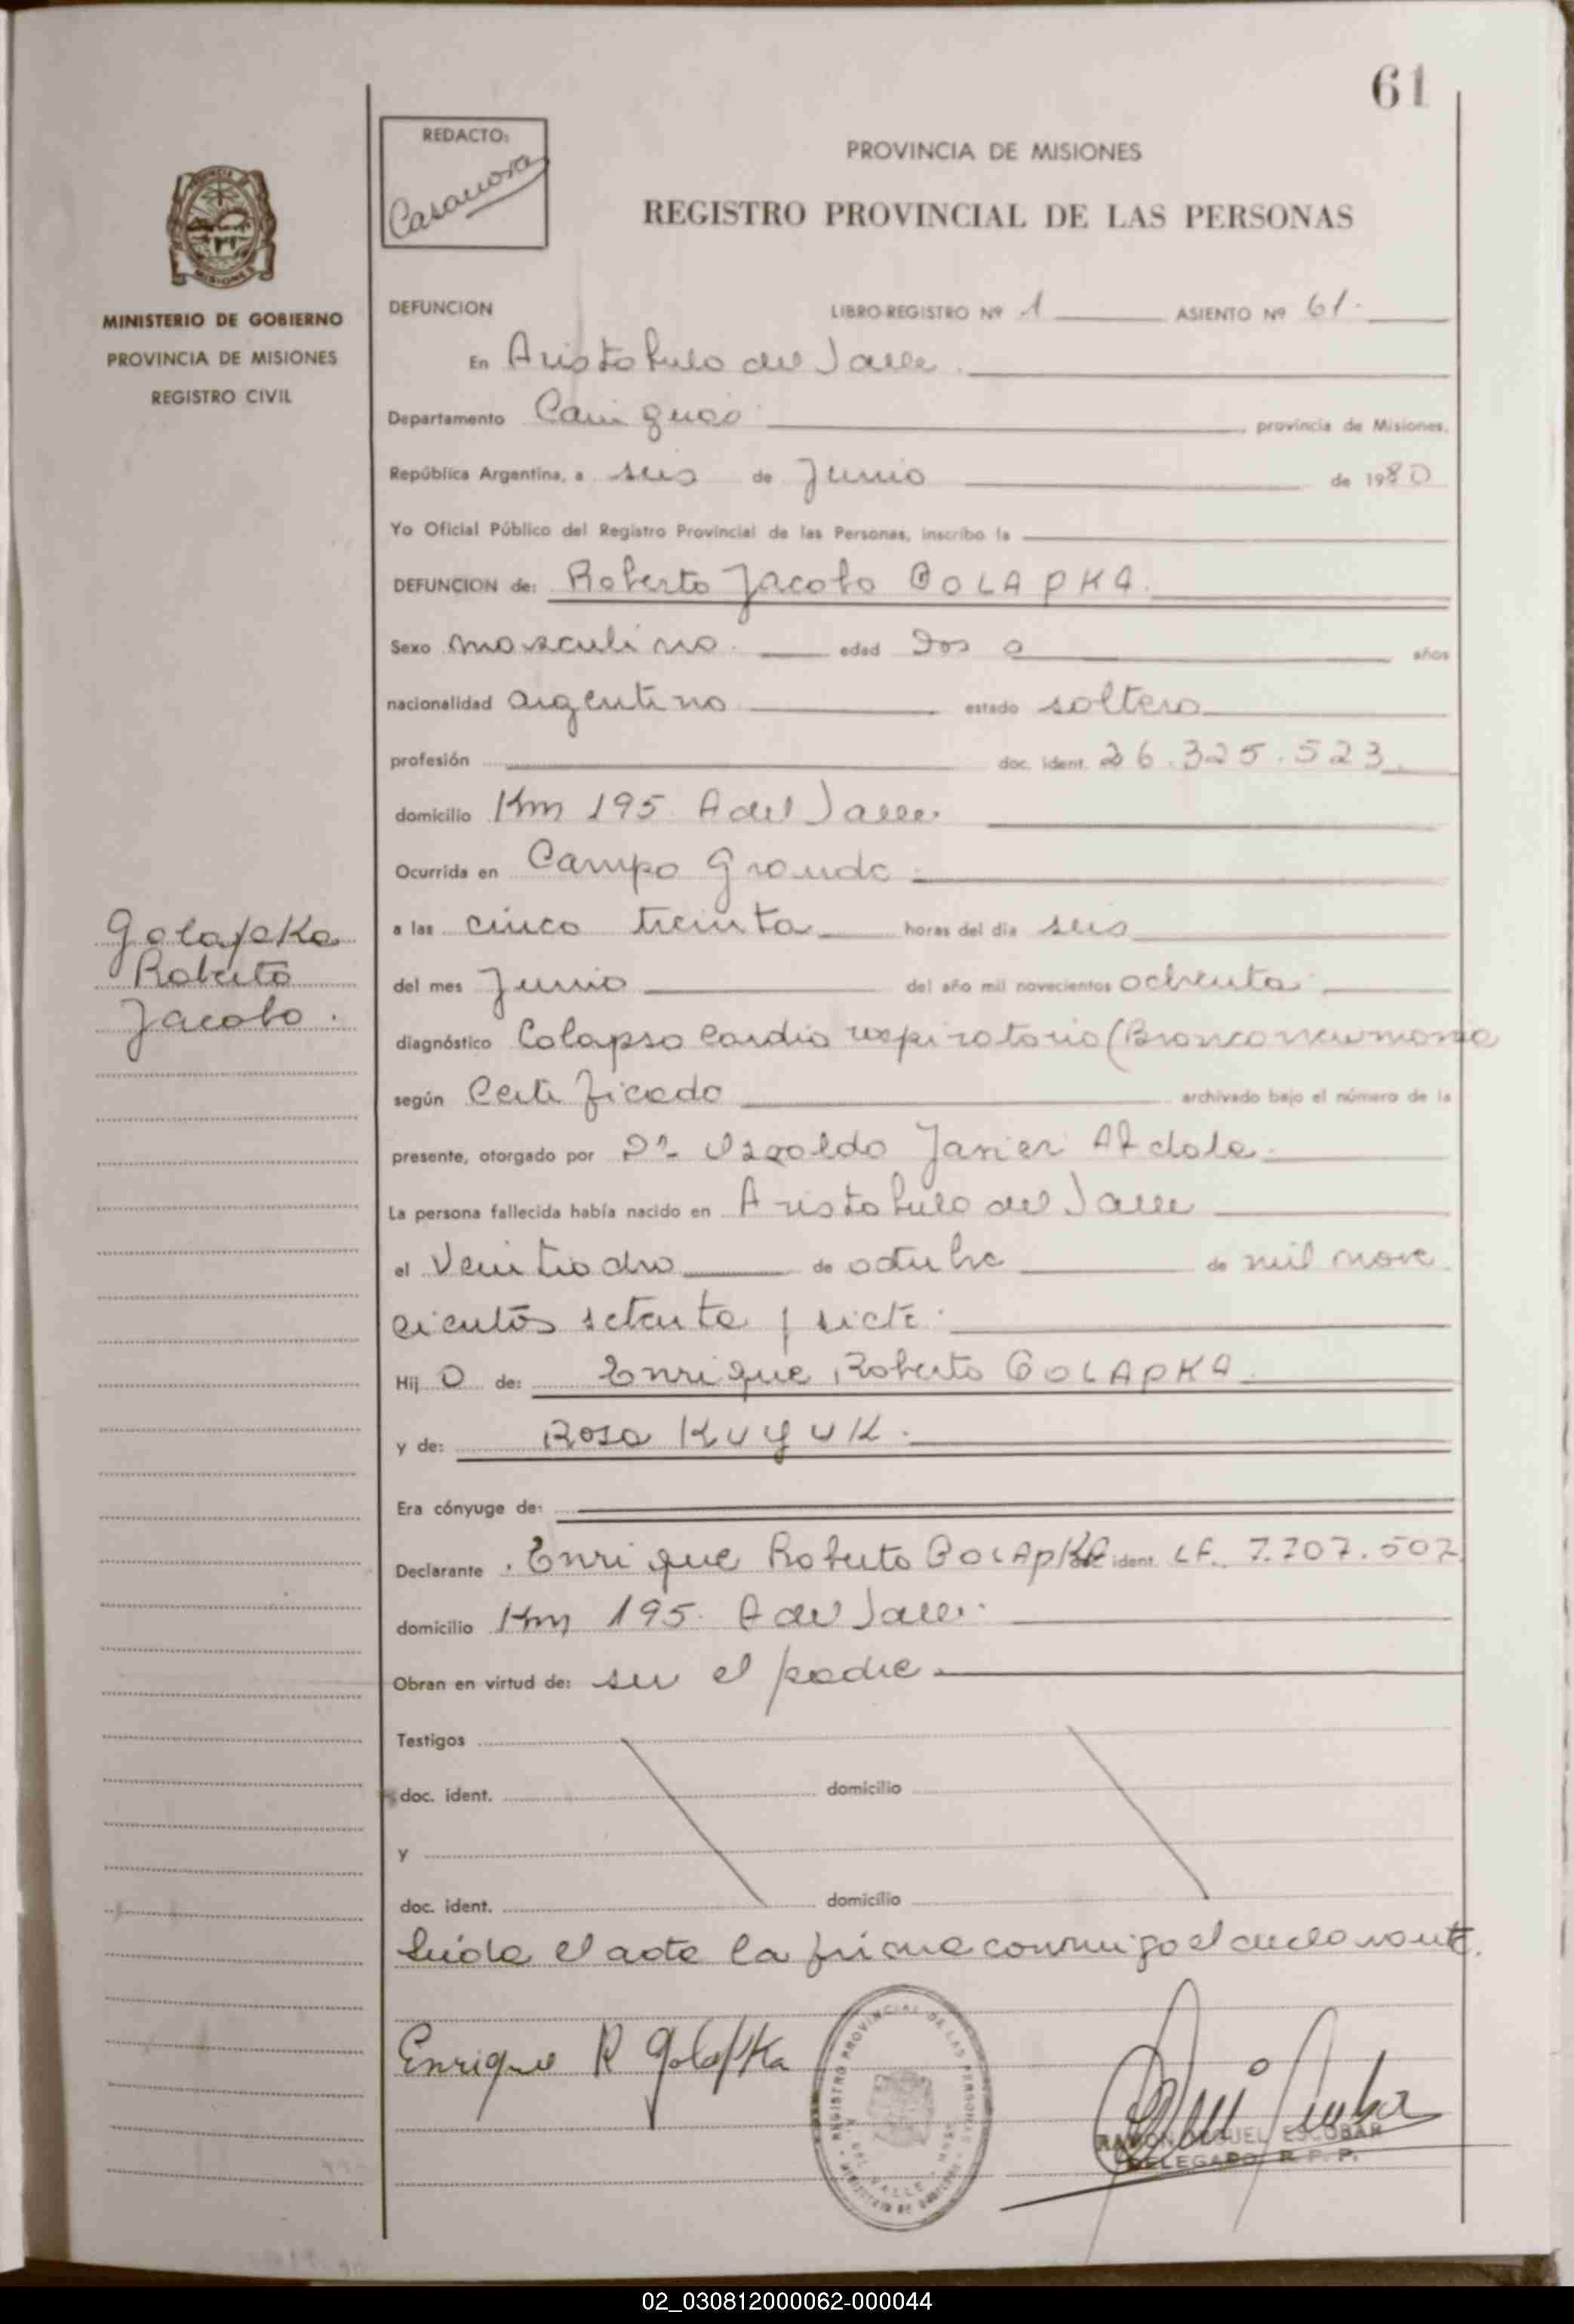 61
REDACTO:
Casanova
PROVINCIA DE MISIONES
REGISTRO PROVINCIAL DE LAS PERSONAS
MISIONES
MINISTERIO DE GOBIERNO
PROVINCIA DE MISIONES
REGISTRO CIVIL
DEFUNCION LIBRO-REGISTRO Nº 1 ASIENTO Nº 61.
En Aristobulo del Valle.
Departamento Cainguas provincia de Misiones,
República Argentina, a seis de Junio de 1980
Yo Oficial Público del Registro Provincial de las Personas, inscribo la
DEFUNCION de: Roberto Jacobo GOLAPKA.
Sexo masculino. edad Dos a años
nacionalidad argentino estado soltero
profesión doc. ident. 26.325.523
domicilio Km 195. A del Valle.
Ocurrida en Campo Grande
Golapka
Roberto
Jacobo.
a las cinco treinta horas del día seis
del mes Junio del año mil novecientos ochenta.
diagnóstico Colapso Cardio respiratorio (Bronconeumonia
según Certificado archivado bajo el número de la
presente, otorgado por Dr. Osvaldo Javier
La persona fallecida había nacido en Aristobulo del Valle
el Veintiocho de octubre de mil nove
cientos setenta y siete.
Hij o de: Enrique Roberto GOLAPKA.
y de: Rosa KUYUK.
Era cónyuge de:
Declarante Enrique Roberto GOLAPKA ident. LE. 7.707.507
domicilio Km 195. A del Valle.
Obran en virtud de: ser el padre
Testigos
doc. ident. domicilio
y
doc. ident. domicilio
Leida el acta la firma conmigo el declarante.
Enrique R Golapka
REGISTRO PROVINCIAL DE LAS PERSONAS
RAMON MIGUEL ESCOBAR
DELEGADO R. P. P.
02_030812000062-000044